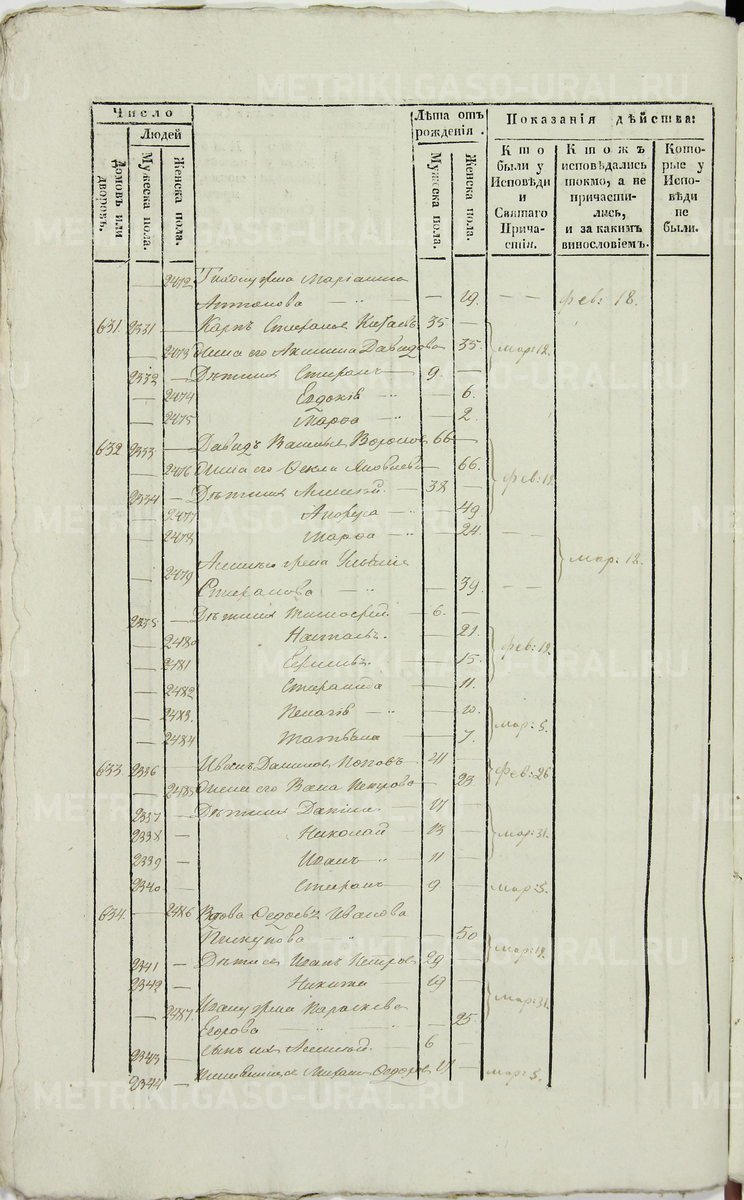 Число
Людей
Домовъ или дворовъ.
Мужеска пола.
Женска пола.
Лѣта отъ рожденія.
Мужеска пола.
Женска пола.
Показанія дѣйства:
Кто были у Исповѣди и Святаго Причастія.
Ктожъ исповѣдались токмо, а не причастились, и за какимъ винословіемъ.
Которые у Исповѣди не были.
— 2472 жена Маріанна
Антонова — 19. — — фев: 18.
631. 2331 — Карпъ Стефановъ 35 —
— 2473 Жена его Акилина Давидова 35 мар: 12.
2332 — Дѣти ихъ Стефанъ — 9. —
— 2474 Евдокія — 6.
— 2475 Марѳа — 2.
632 2333 — Давидъ Васильевъ 66 —
— 2476 Жена его Ѳекла Яковлева — 66. фев: 18.
2334 — Дѣти ихъ Алексѣй. — 38 —
— 2477 — 49
— 2478 Марѳа — 24.
— 2479 Алексѣя жена Ульянія
Стефанова — 39. — — мар: 18.
2335 — Дѣти ихъ Тимоѳей. — 6. —
— 2480 Наталья. — 21.
— 2481 — 15. фев: 19.
— 2482 Стефанида — 11.
— 2483. Пелагія — 10. мар: 5.
— 2484 Татьяна — 7.
633. 2336 — Иванъ Даниловъ Поповъ — 41 — фев: 26
— 2485 Жена его Петрова — 23
2337 — Дѣти ихъ Данила — 17 —
2338 — Николай — 13 — мар: 31.
2339 — Иванъ — 11 —
2340 — Стефанъ — 9 — мар: 5.
634. — 2486 Вдова Ѳедосья Иванова
Пискунова — 50 мар: 19.
2341 — Дѣти ея Иванъ Петровъ 29 —
2342 — Никита — 19 —
— 2487. Ивана жена Параскева мар: 31.
Егорова — 25.
2343 — Сынъ ихъ Алексѣй. — 6 —
2344 — Михаилъ Ѳедоровъ — мар: 5.
METRIKI.GASO-URAL.RU